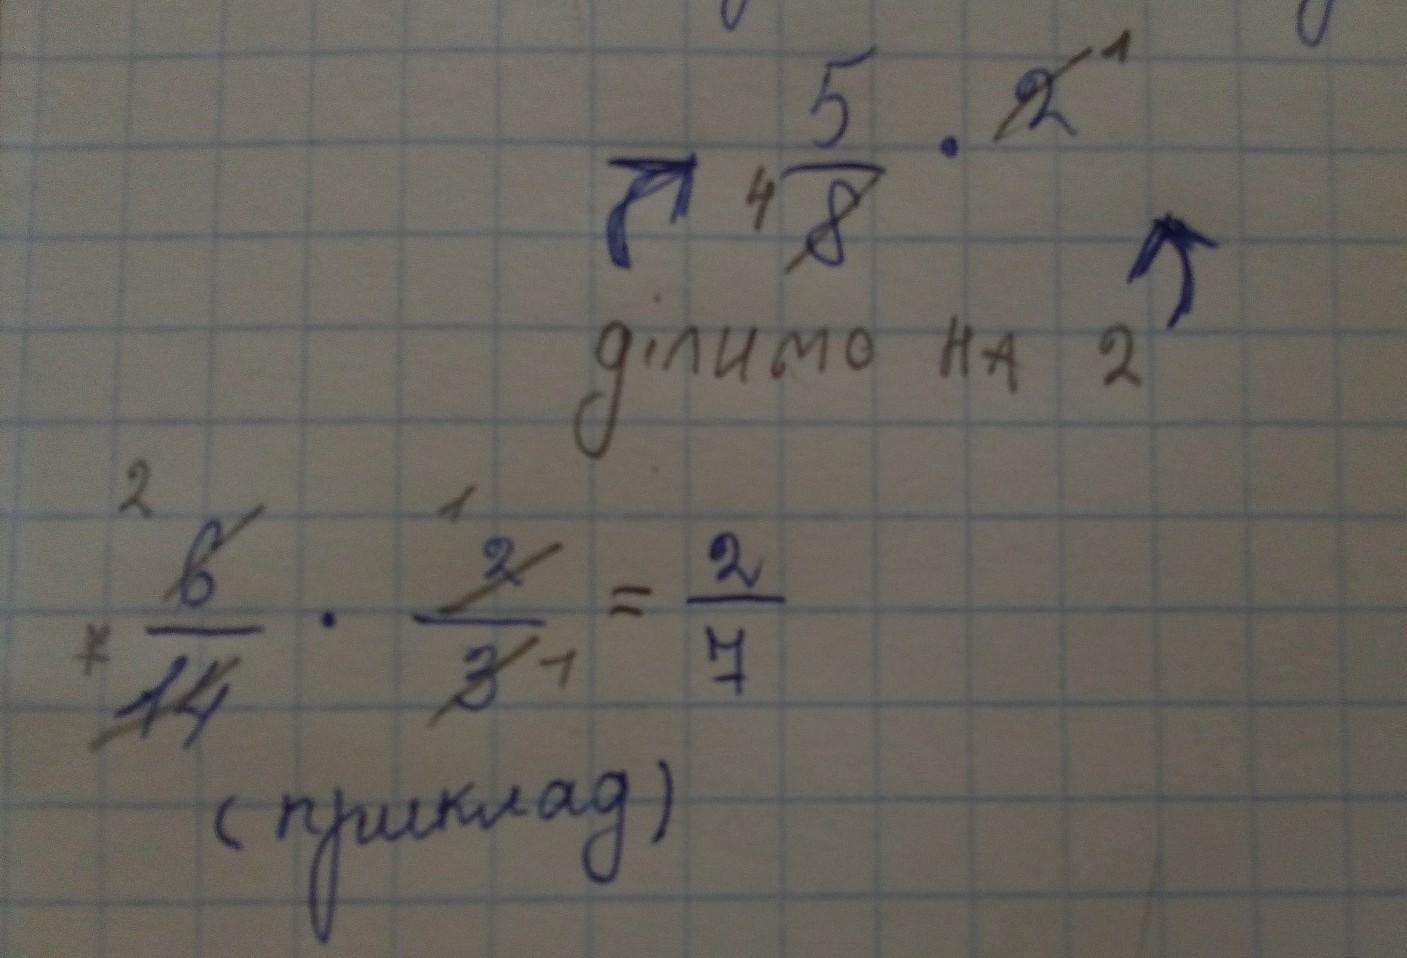 4 5/8 · 2 1
ділимо на 2
2 6/14 7 · 1 2/3 1 = 2/7
(приклад)